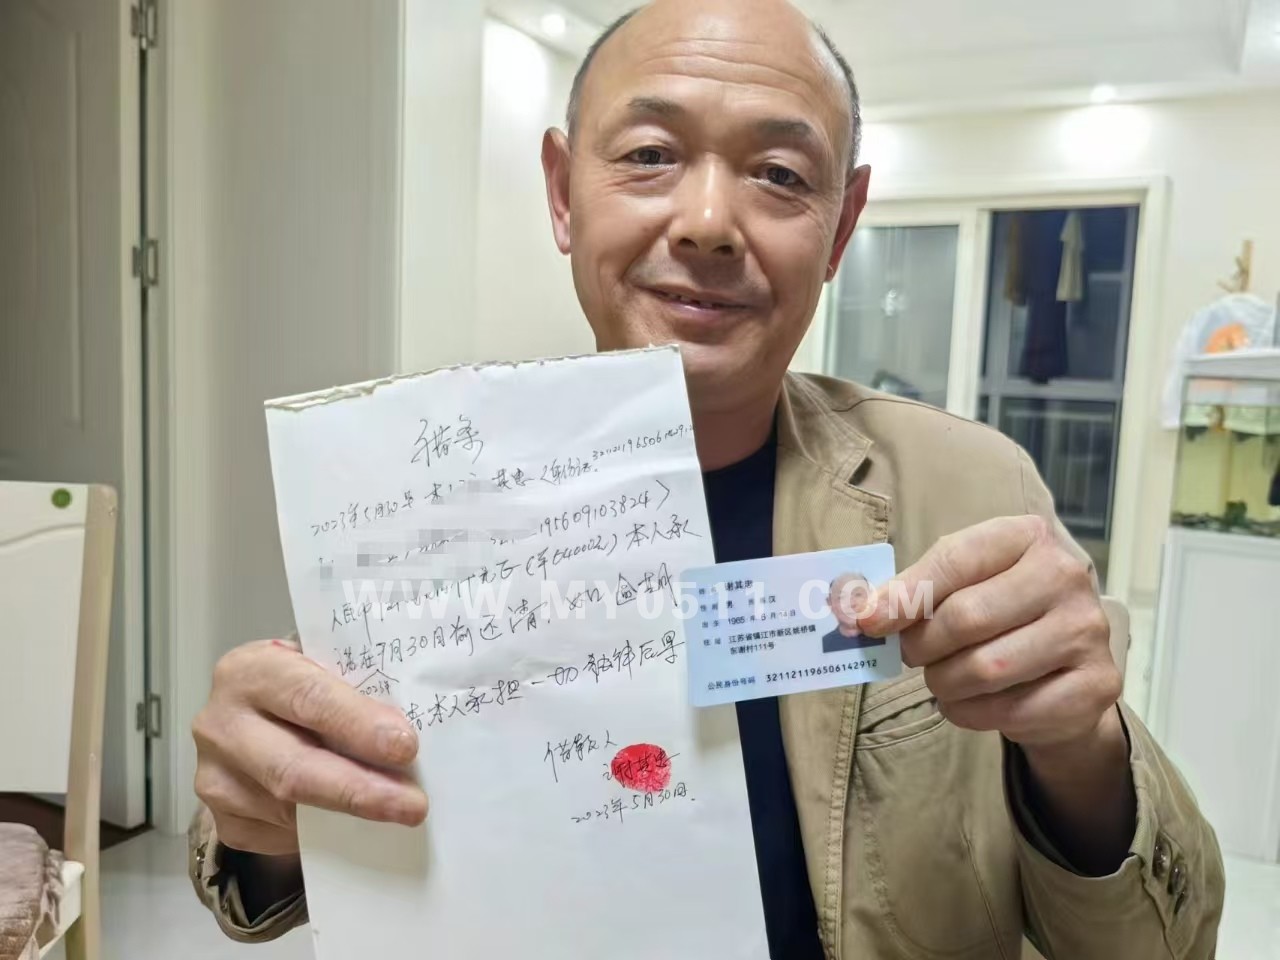 借条
2023年5月30号 本人 其忠（身份证
195609103824）
人民币 元正（¥64000元）本人承
诺在9月30日前还清，如 逾期，
2023年
本人承担一切法律后果
借款人
谢其忠
2023年5月30日.
姓名 谢其忠
性别 男 民族 汉
出生 1965年6月14日
住址 江苏省镇江市新区姚桥镇
东谢村111号
公民身份号码 321121196506142912
WWW.MY0511.COM